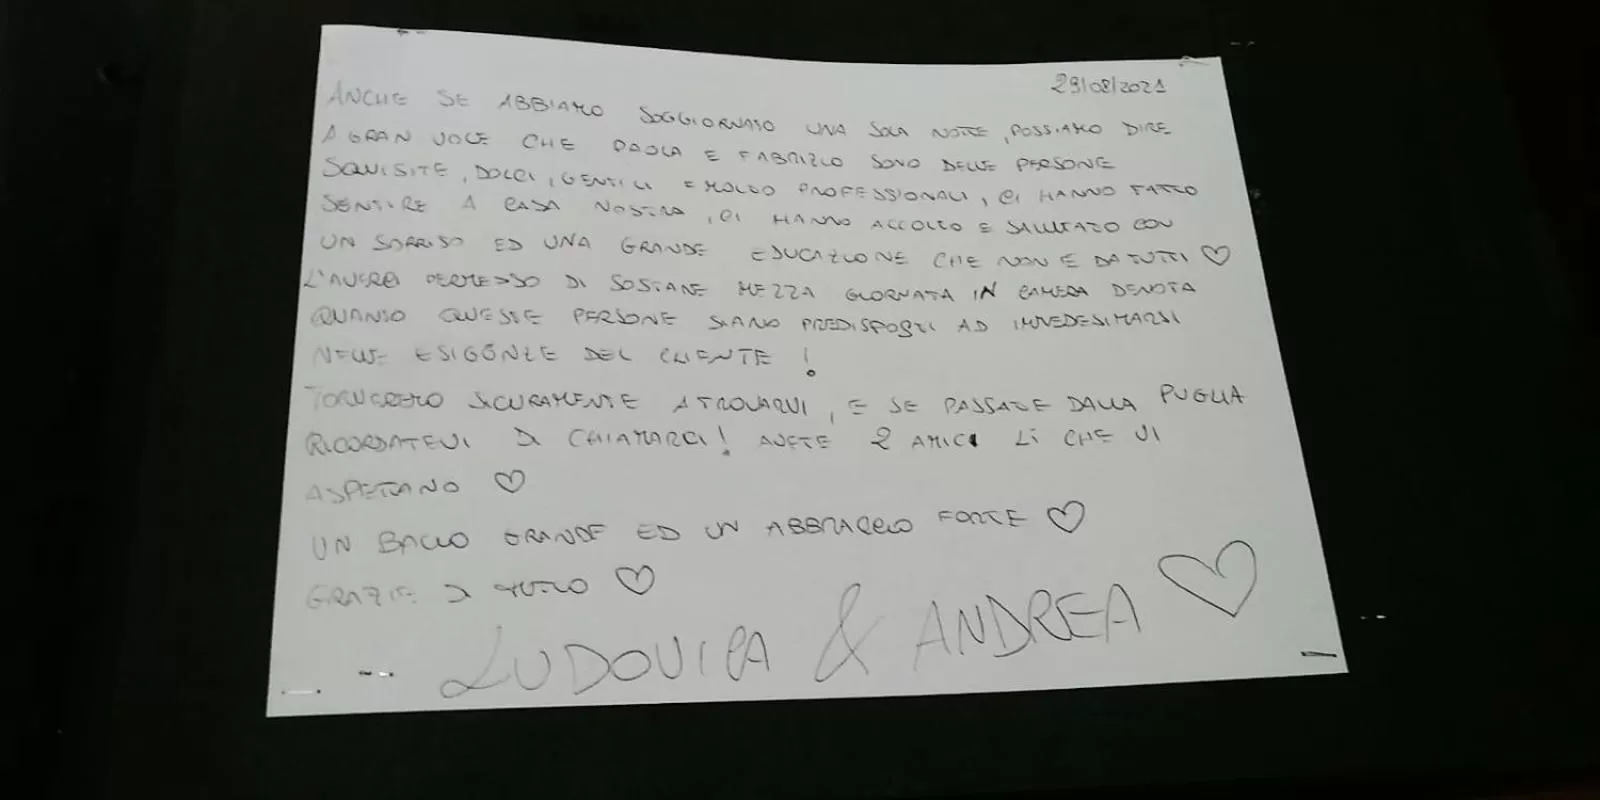 29/08/2021
ANCHE SE ABBIAMO SOGGIORNATO UNA SOLA NOTTE, POSSIAMO DIRE
A GRAN VOCE CHE PAOLA E FABRIZIO SONO DELLE PERSONE
SQUISITE, DOLCI, GENTILI E MOLTO PROFESSIONALI, CI HANNO FATTO
SENTIRE A CASA NOSTRA, CI HANNO ACCOLTO E SALUTATO CON
UN SORRISO ED UNA GRANDE EDUCAZIONE CHE NON È DA TUTTI ♡
L'AVERCI PERMESSO DI SOSTARE MEZZA GIORNATA IN CAMERA DENOTA
QUANTO QUESTE PERSONE SIANO PREDISPOSTI AD IMMEDESIMARSI
NELLE ESIGENZE DEL CLIENTE !
TORNEREMO SICURAMENTE A TROVARVI, E SE PASSATE DALLA PUGLIA
RICORDATEVI DI CHIAMARCI! AVETE 2 AMICI LÌ CHE VI
ASPETTANO ♡
UN BACIO GRANDE ED UN ABBRACCIO FORTE ♡
GRAZIE DI TUTTO ♡
LUDOVICA & ANDREA ♡